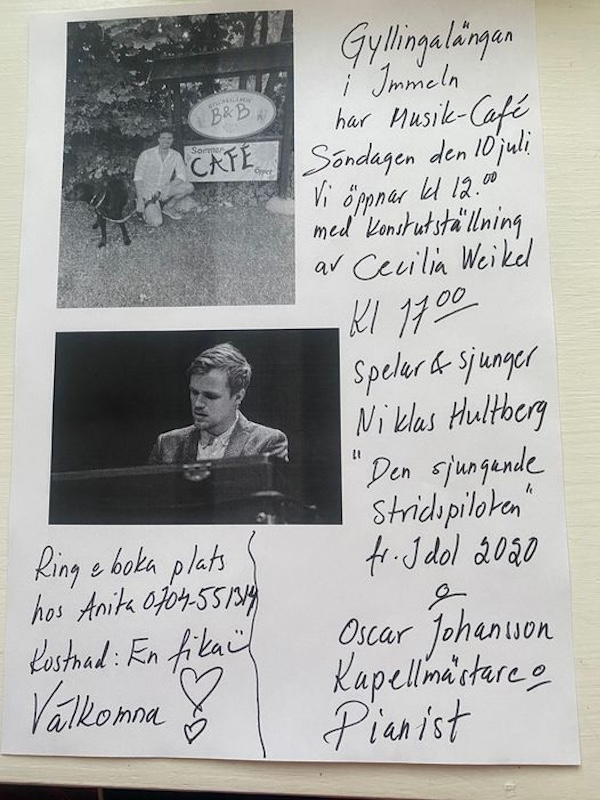 B&B
Sommar
CAFÉ
Öppet
Gyllingalängan
i Immeln
har Musik-Café
Söndagen den 10 juli
Vi öppnar kl 12.00
med konstutställning
av Cecilia Weikel
Kl 17 00
spelar & sjunger
Niklas Hultberg
"Den sjungande
Stridspiloten"
fr. Idol 2020
o
Oscar Johansson
Kapellmästare o
Pianist
Ring o boka plats
hos Anita 0704-551314
Kostnad: En fika
Välkomna